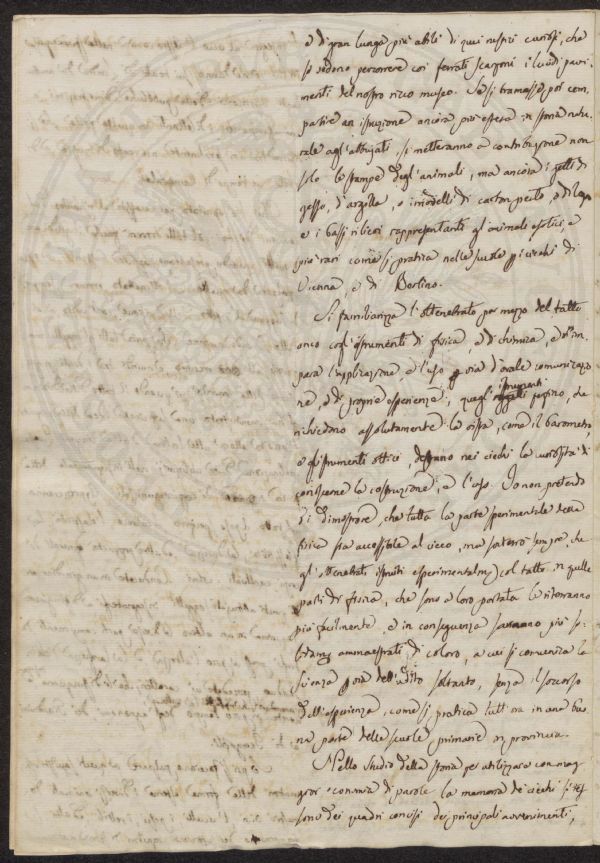 e di gran lunga più abili di quei nostri curiosi, che
si vedono percorrere coi ferrati scarponi i lucidi pavi-
menti del nostro ricco museo. Se si bramasse poi com-
partire un istruzione ancora più estesa in storia natu-
rale agl'allievi, si metteranno a contribuzione non
solo le stampe degl'animali, ma ancora i getti di
gesso, d'argilla, o i modelli di carton pesto, o di legno
e i bassi rilievi rappresentanti gl'animali esotici, e
più rari come si pratica nelle scuole pei ciechi di
Vienna, e di Berlino.
Si familiarizza l'ottenebrato per mezzo del tatto
anco cogl'istrumenti di fisica, e di chimica, e s'im-
para l'applicazione, e l'uso per via d'orale comunicazio-
ne, e di proprie esperienze; quegl'istrumenti perfino, che
richiedono assolutamente la vista, come il barometro,
o gl'istrumenti ottici, destano nei ciechi la curiosità di
conoscerne la costruzione, e l'uso. Io non pretendo
di dimostrare, che tutta la parte sperimentale della
fisica sia accessibile al cieco, ma sosterrò sempre, che
gl'ottenebrati istruiti esperimentalm. col tatto in quelle
parti di fisica, che sono a loro portata le riterranno
più facilmente, e in conseguenza saranno più so-
lidam. ammaestrati di coloro, a cui si comunica la
scienza per via dell'udito soltanto, senza il soccorso
dell'esperienza, come si pratica tutt'ora in una buo-
na parte delle scuole primarie in provincia.
Nello studio della storia per utilizzare con mag-
gior economia di parole la memoria de' ciechi si tes-
sono dei quadri concisi dei principali avvenimenti,